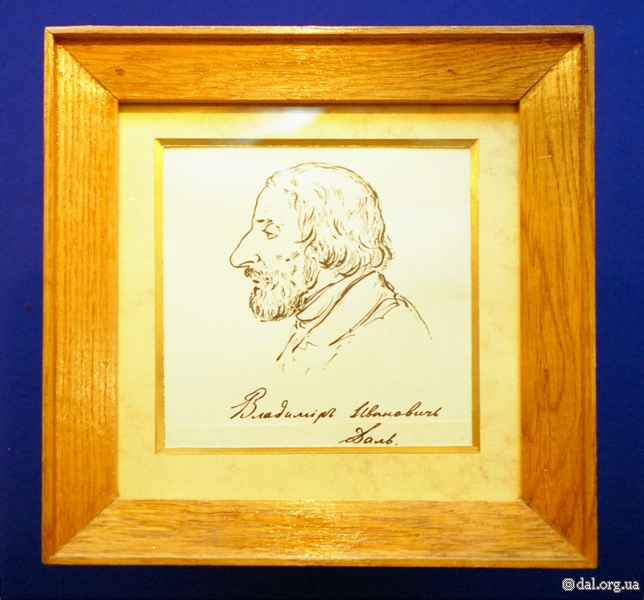 Владиміръ Ивановичъ
Даль.
@dal.org.ua